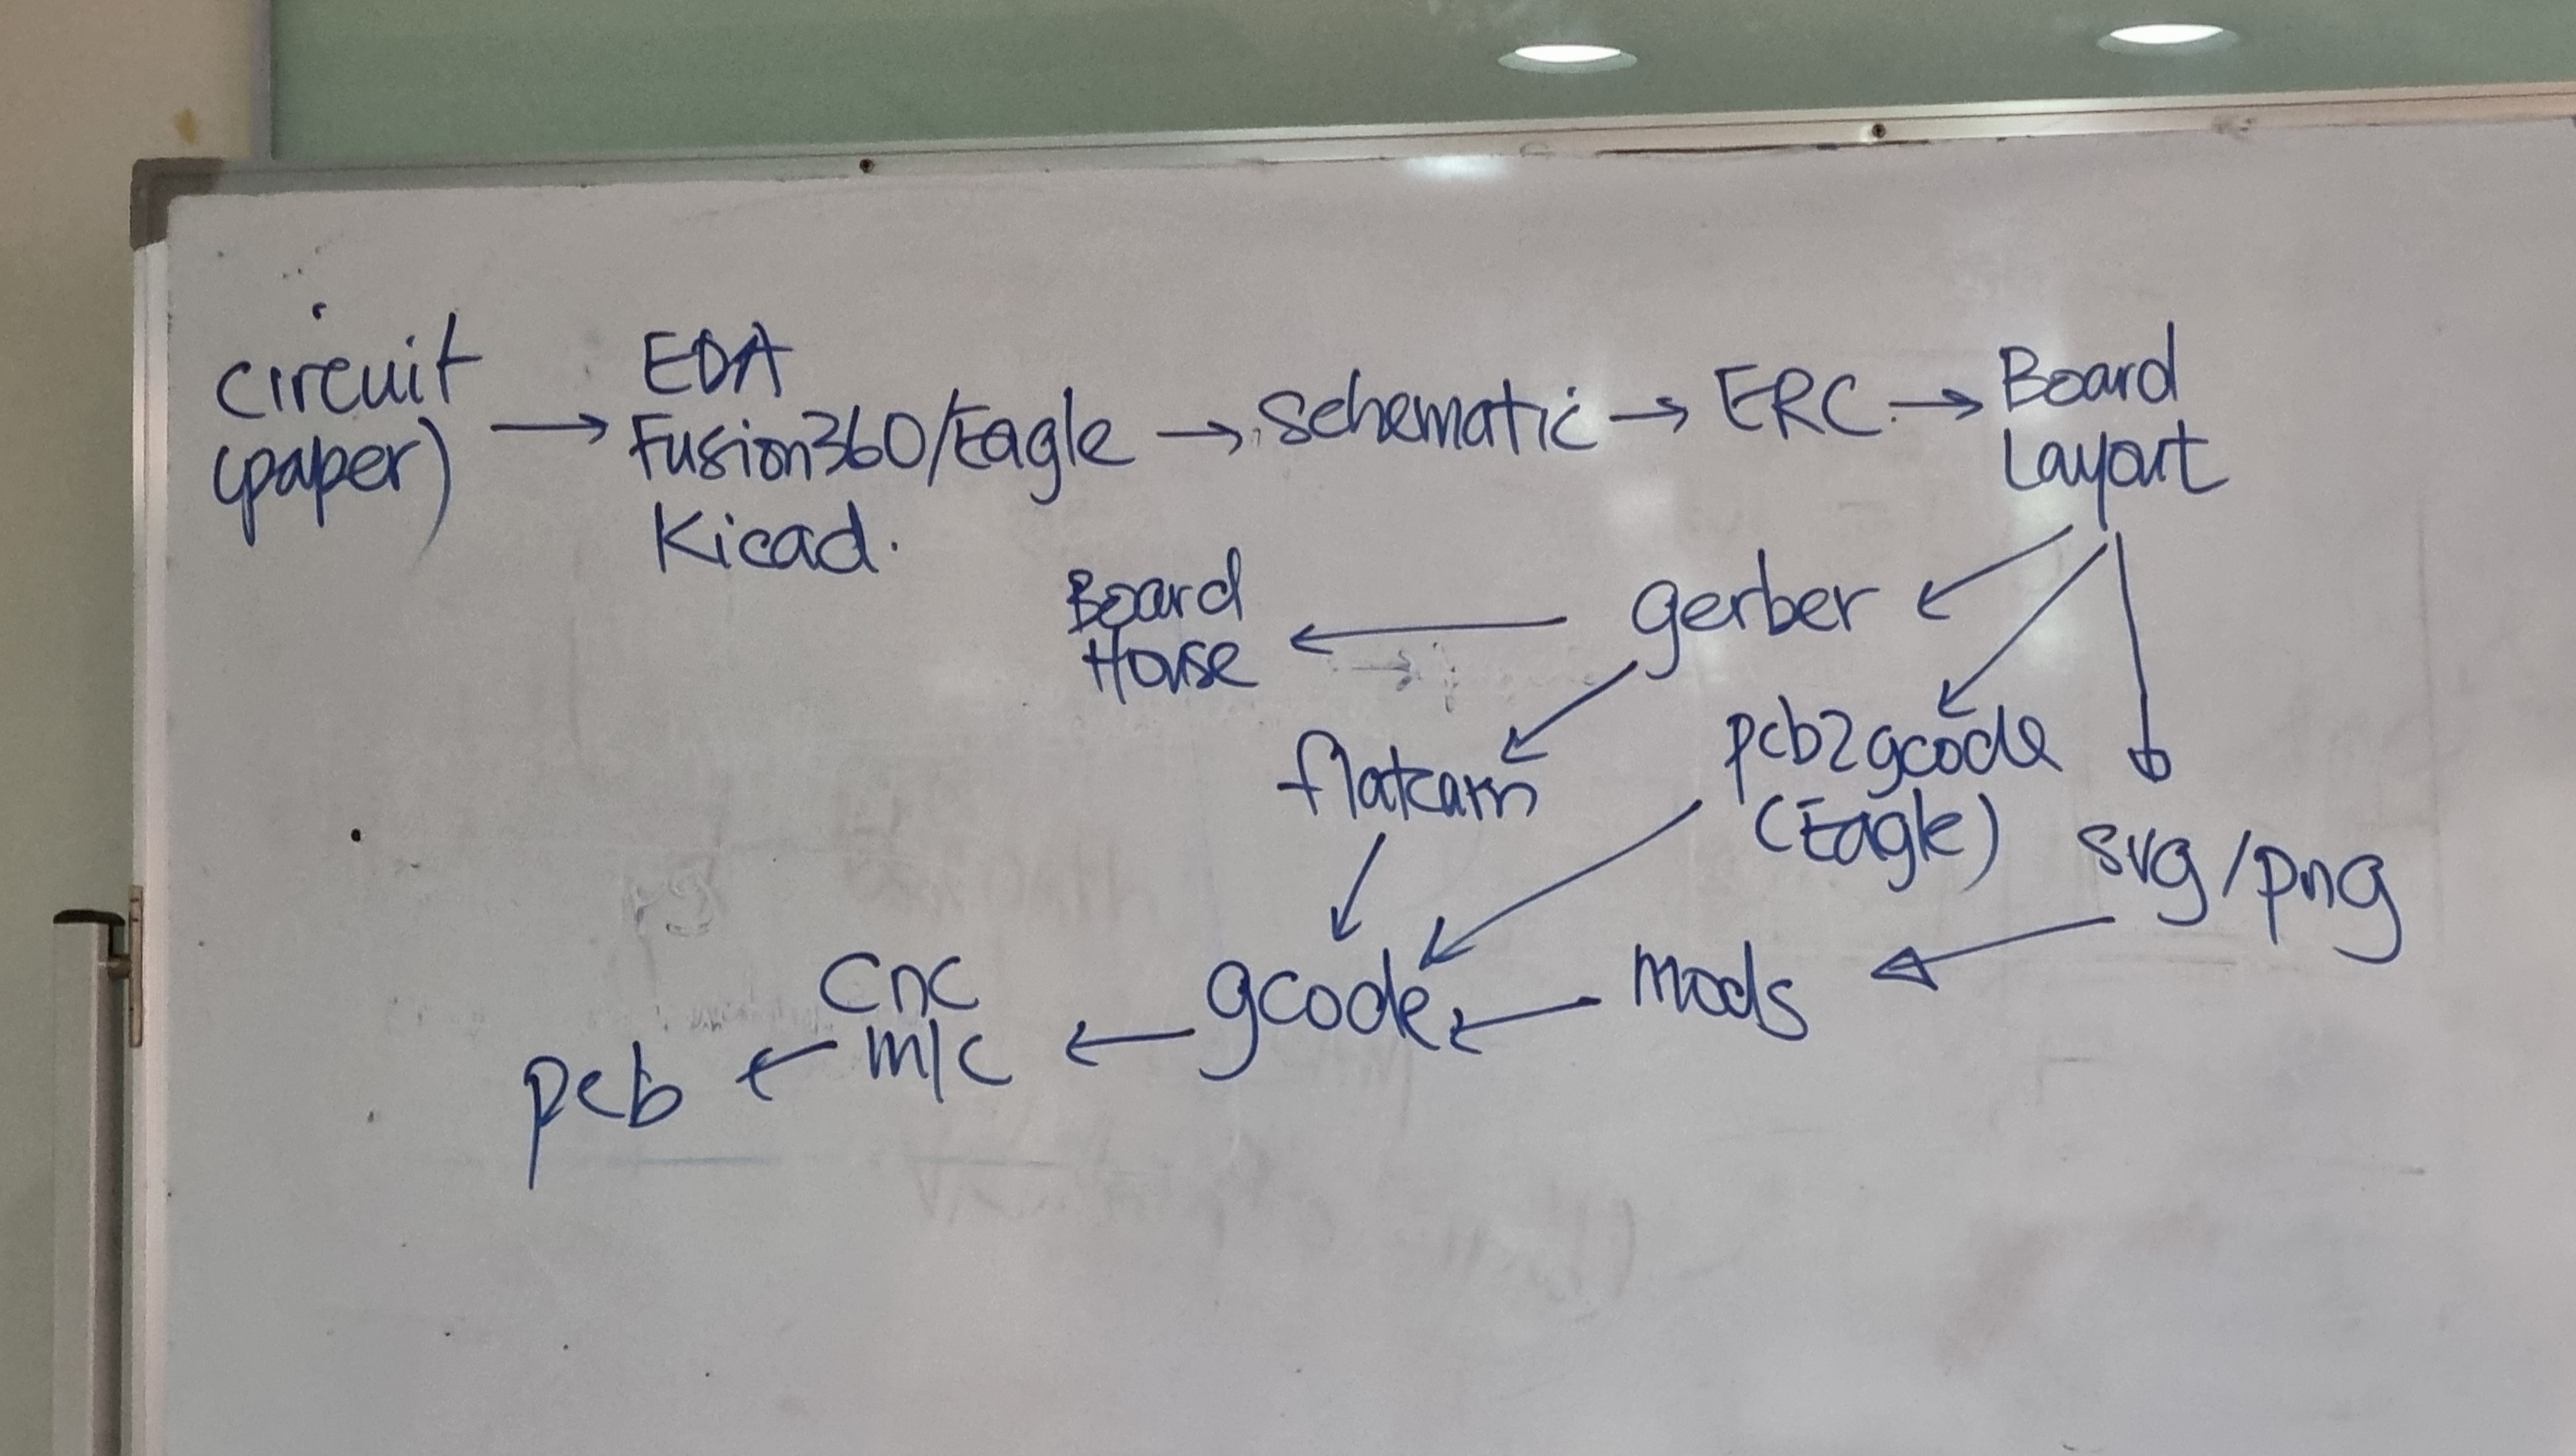 circuit
(paper)
EDA
Fusion360/Eagle
Kicad.
schematic
ERC
Board
Layout
gerber
Board
House
flatcam
pcb2gcode
(Eagle)
svg/png
mods
gcode
cnc
m/c
pcb